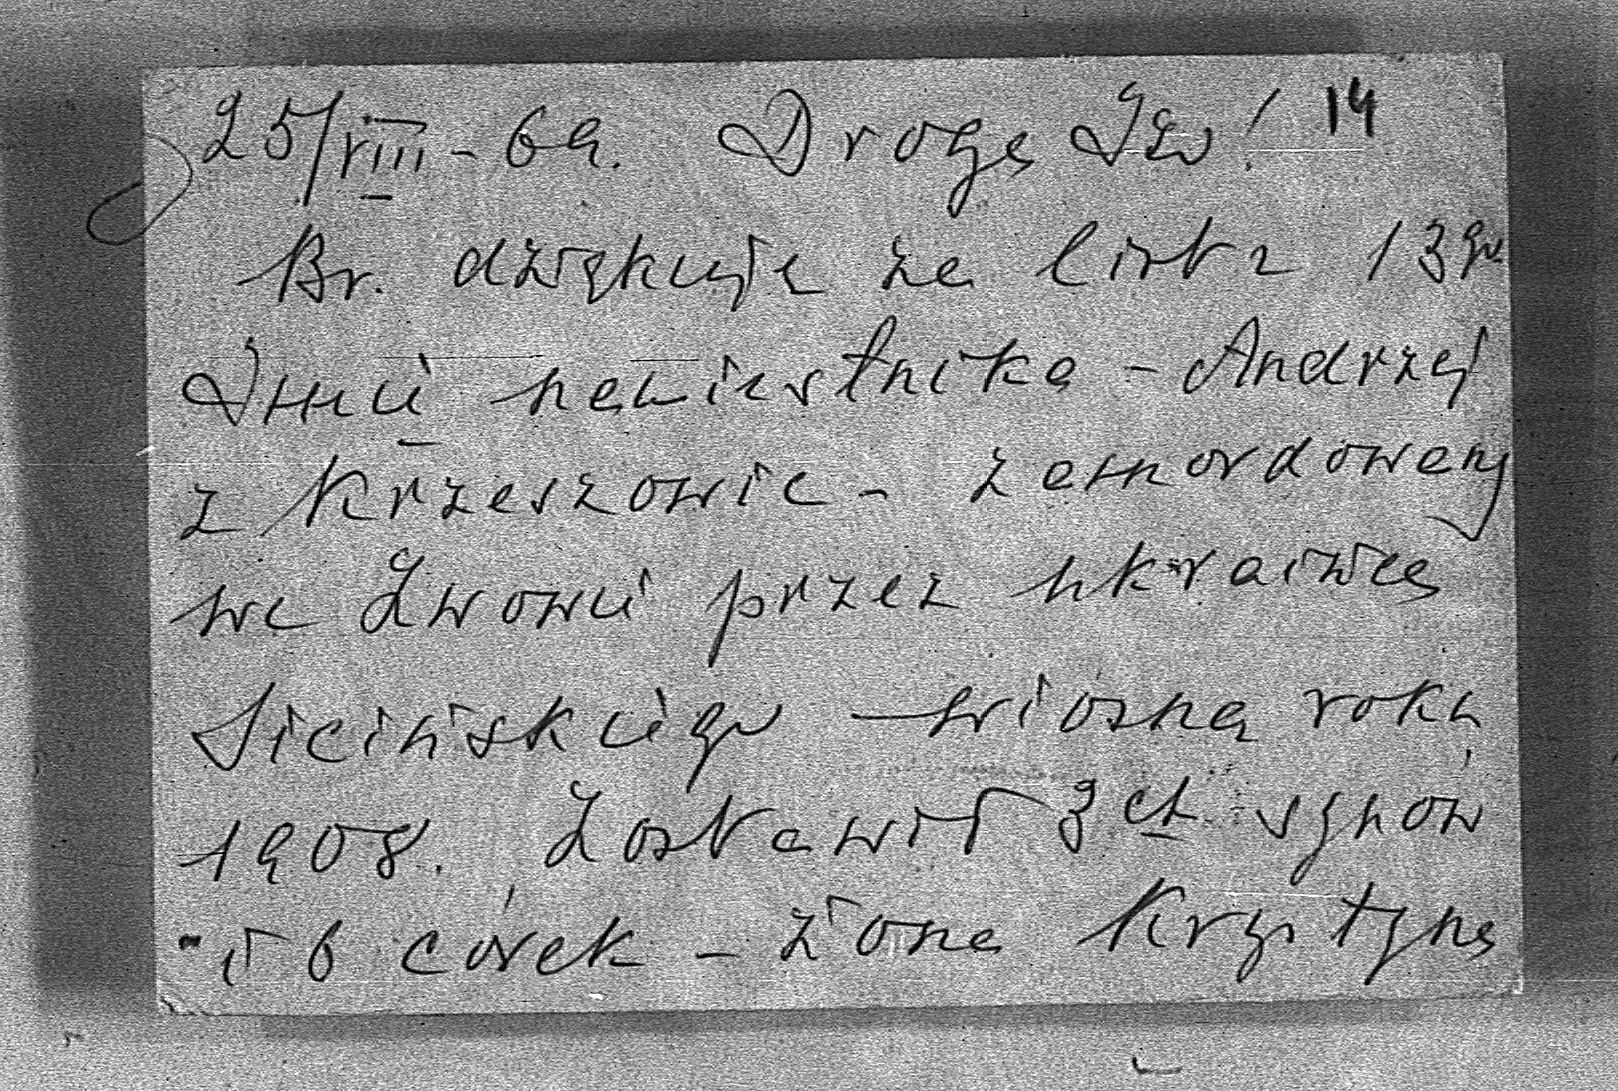 25/VIII - 69. Droga Iw! 14
Br. dziękuję za list z 13 go
Imię namiestnika - Andrzej
z Krzeszowic - zamordowany
we Lwowie przez ukraińca
Siczińskiego - wiosną roku
1908. Zostawił 3ch synów
i 6 córek - żona Krystyna